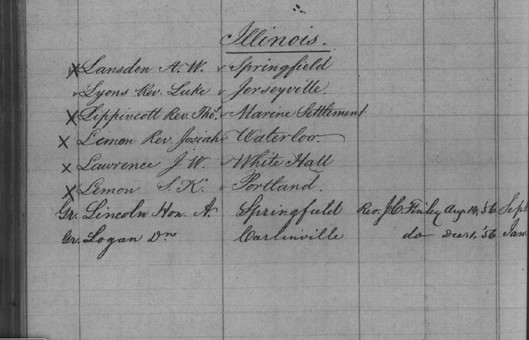 Illinois.
x Lansden A. W. v Springfield
v Lyons Rev. Luke v Jerseyville.
x Lippincott Rev. Tho. v Marine Settlement
x Lemon Rev. Josiah v Waterloo
x Lawrence J. W. v White Hall
x Lemon S. K. v Portland.
Gr. Lincoln Hon. A. Springfield Rev. J. C. Finley Aug 19, '56 Sept
Gr. Logan Dr. Carlinville do Dec 1, '56 Jan